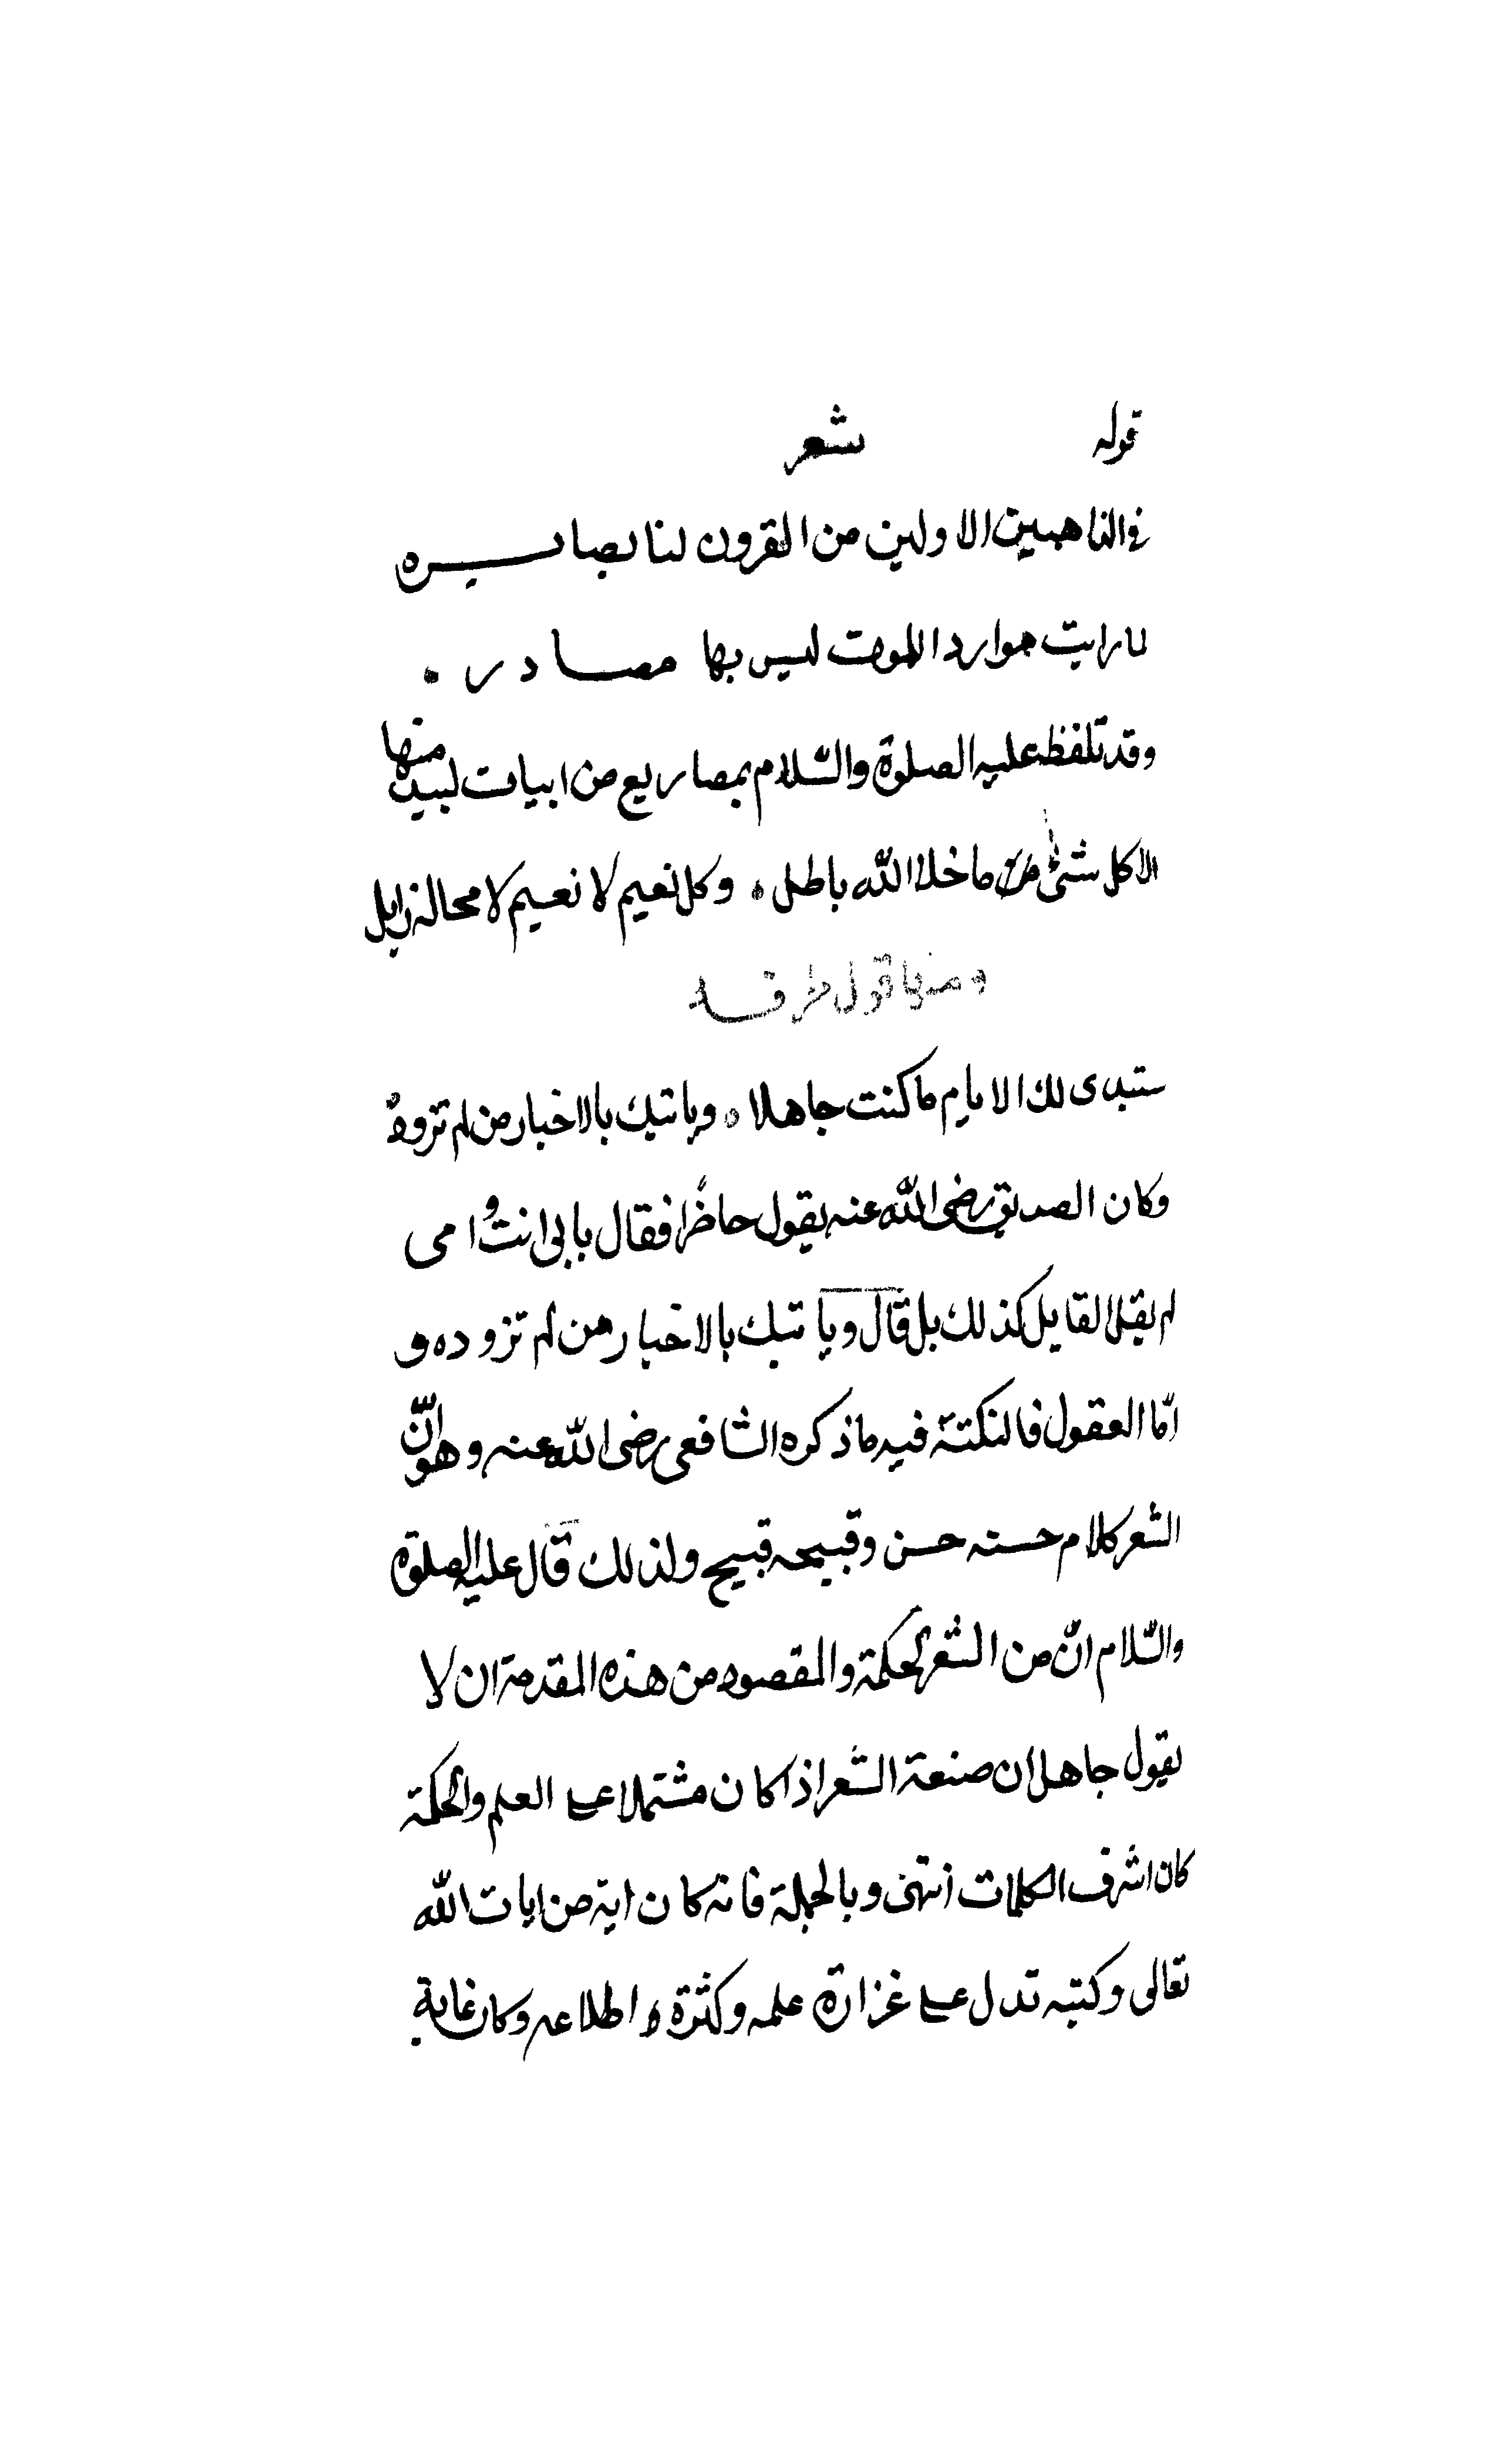 قوله شعر
في الذاهبين الاولين من القرون لنا بصايره
لما رايت موارد الموت ليس بها مصادر ٠
وقد تلفظ عليه الصلوة والسّلام بمصاريع من ابيات لبيد منها
الا كل شئ ما خلا الله باطل ٠ وكل نعيم لا نعيم لا محالة زايل
ومنها قول طرفه
ستبدى لك الايام ما كنت جاهلا ٥ وياتيك بالاخبار من لم تزود
وكان الصديق رضى الله عنه يقول حاضرا فقال بابى انت وامى
لم يقل القايل كذلك بل قال وياتيك بالاخبار من لم تزوده و
امّا العقول فالنكتة فيه ما ذكره الشافعى رضى الله عنه وهو انّ
الشعر كلام حسنه حسن وقبيحه قبيح ولذلك قال عليه الصلوة
والسّلام انّ من الشعر لحكمة والمقصود من هذه المقدمة ان لا
يقول جاهل ان صنعة الشعر اذا كان مشتملا على العلم والحكمة
كان اشرف الكلمات انتهى وبالجملة فانه كان اية من ايات الله
تعالى وكتبه تدل على غزارة علمه وكثرة اطلاعه وكان غاية